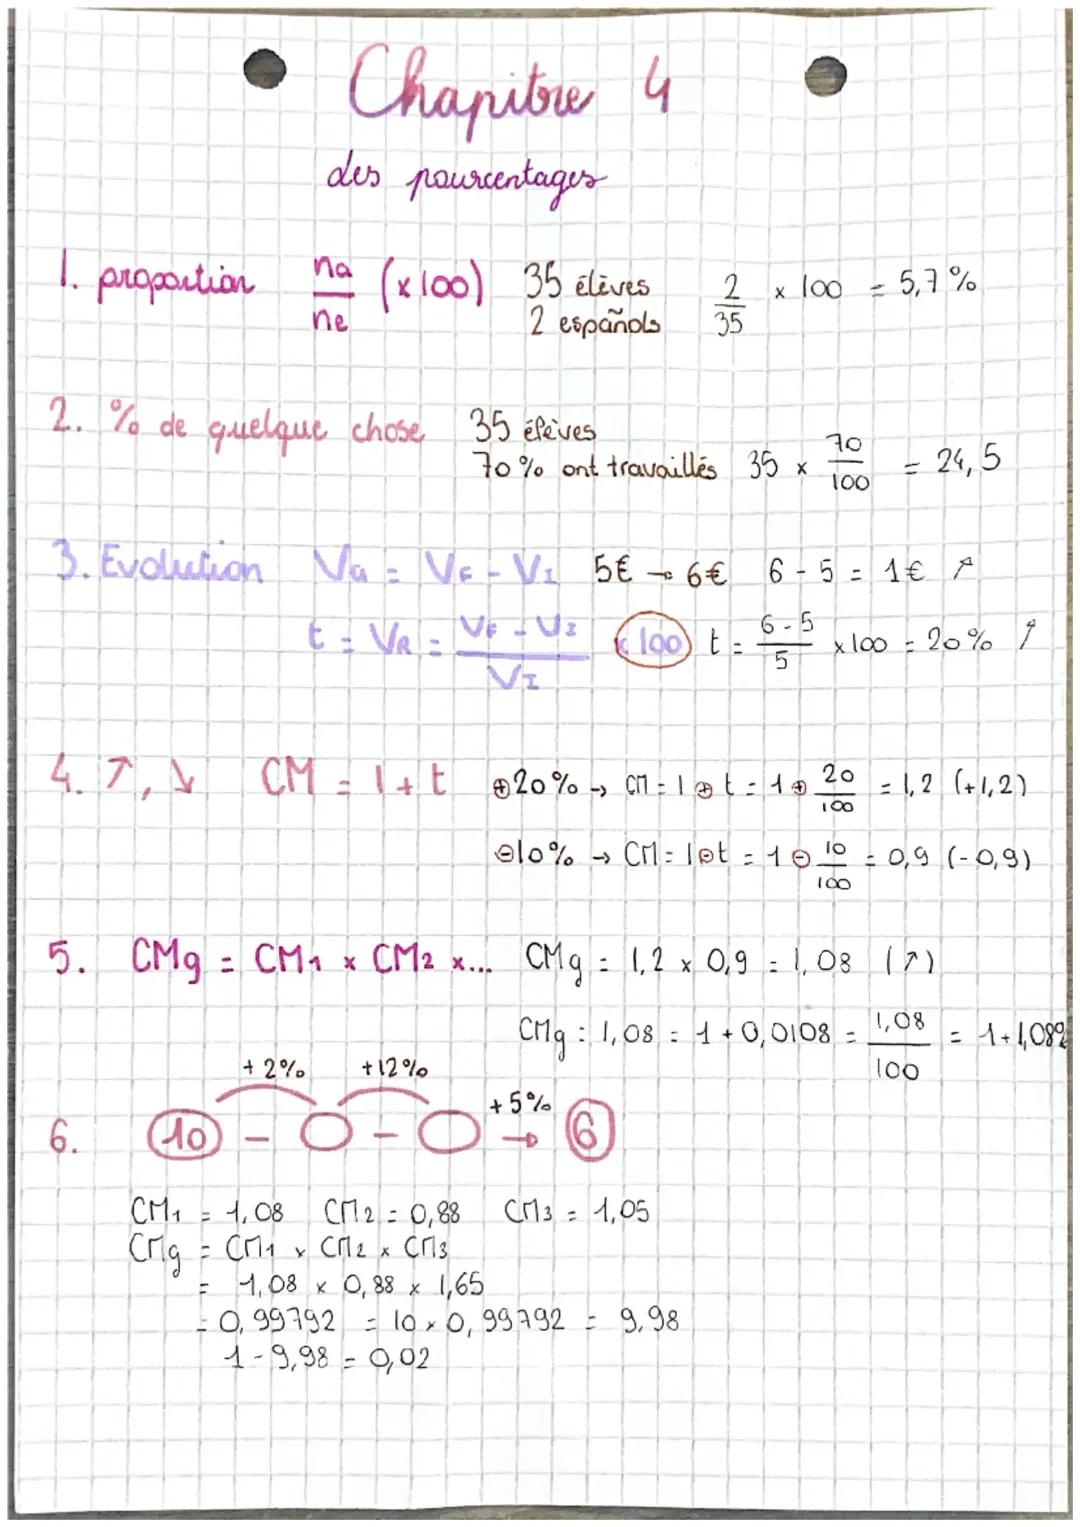 Chapitre 4
des pourcentages
1. proportion na/ne (x100) 35 élèves 2/35 x 100 = 5,7%
2 españols
2. % de quelque chose 35 élèves
70% ont travaillés 35 x 70/100 = 24,5
3. Evolution Va = VF - VI 5€ → 6€ 6 - 5 = 1€ ↗
t = VR = VF - VI / VI x 100 t = 6-5/5 x100 = 20% ↗
4. ↗, ↘ CM = 1 + t ⊕20% → CM = 1 ⊕ t = 1 ⊕ 20/100 = 1,2 (+1,2)
⊖10% → CM = 1 ⊖ t = 1 ⊖ 10/100 = 0,9 (-0,9)
5. CMg = CM1 x CM2 x... CMg = 1,2 x 0,9 = 1,08 (↗)
CMg = 1,08 = 1 + 0,0108 = 1,08/100 = 1+1,08%
+ 2% +12% +5%
6. 10 - - → 6
CM1 = 1,08 CM2 = 0,88 CM3 = 1,05
CMg = CM1 x CM2 x CM3
= 1,08 x 0,88 x 1,65
= 0,99792 = 10 x 0,99792 = 9,98
1 - 9,98 = 0,02